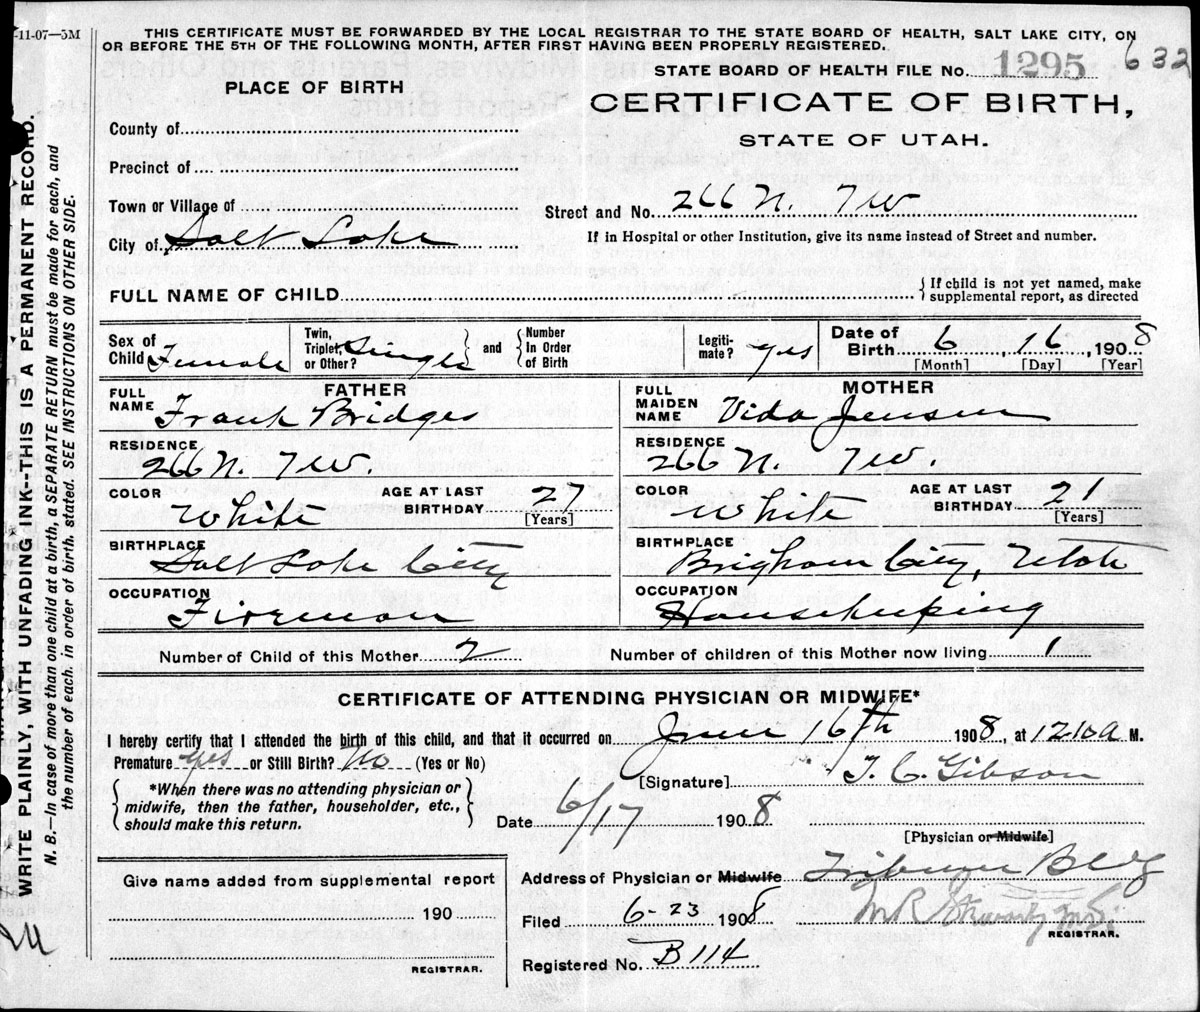 -11-07—5M
THIS CERTIFICATE MUST BE FORWARDED BY THE LOCAL REGISTRAR TO THE STATE BOARD OF HEALTH, SALT LAKE CITY, ON
OR BEFORE THE 5TH OF THE FOLLOWING MONTH, AFTER FIRST HAVING BEEN PROPERLY REGISTERED.
632
STATE BOARD OF HEALTH FILE No. 1295
PLACE OF BIRTH
CERTIFICATE OF BIRTH,
STATE OF UTAH.
County of
Precinct of
Town or Village of
City of Salt Lake
Street and No. 266 N. 7W
If in Hospital or other Institution, give its name instead of Street and number.
FULL NAME OF CHILD
{If child is not yet named, make
supplemental report, as directed
Sex of Child Female
Twin, Triplet, or Other? Single
and
Number In Order of Birth
Legiti-mate? yes
Date of Birth 6, 16, 1908
[Month] [Day] [Year]
FATHER
FULL NAME Frank Bridges
MOTHER
FULL MAIDEN NAME Vida Jensen
RESIDENCE 266 N. 7W.
RESIDENCE 266 N. 7W.
COLOR White
AGE AT LAST BIRTHDAY 27 [Years]
COLOR White
AGE AT LAST BIRTHDAY 21 [Years]
BIRTHPLACE Salt Lake City
BIRTHPLACE Brigham City, Utah
OCCUPATION Fireman
OCCUPATION Housekeeping
Number of Child of this Mother 2
Number of children of this Mother now living 1
CERTIFICATE OF ATTENDING PHYSICIAN OR MIDWIFE*
I hereby certify that I attended the birth of this child, and that it occurred on June 16th 1908, at 12.10a M.
Premature yes or Still Birth? No (Yes or No)
[Signature] T. C. Gibson
*When there was no attending physician or
midwife, then the father, householder, etc.,
should make this return.
Date 6/17 1908
[Physician or Midwife]
Address of Physician or Midwife Tribune Bldg
Give name added from supplemental report
190
REGISTRAR.
Filed 6-23 1908
M.D.
REGISTRAR.
Registered No. B114
WRITE PLAINLY, WITH UNFADING INK--THIS IS A PERMANENT RECORD.
N. B.—In case of more than one child at a birth, a SEPARATE RETURN must be made for each, and
the number of each, in order of birth, stated. SEE INSTRUCTIONS ON OTHER SIDE.